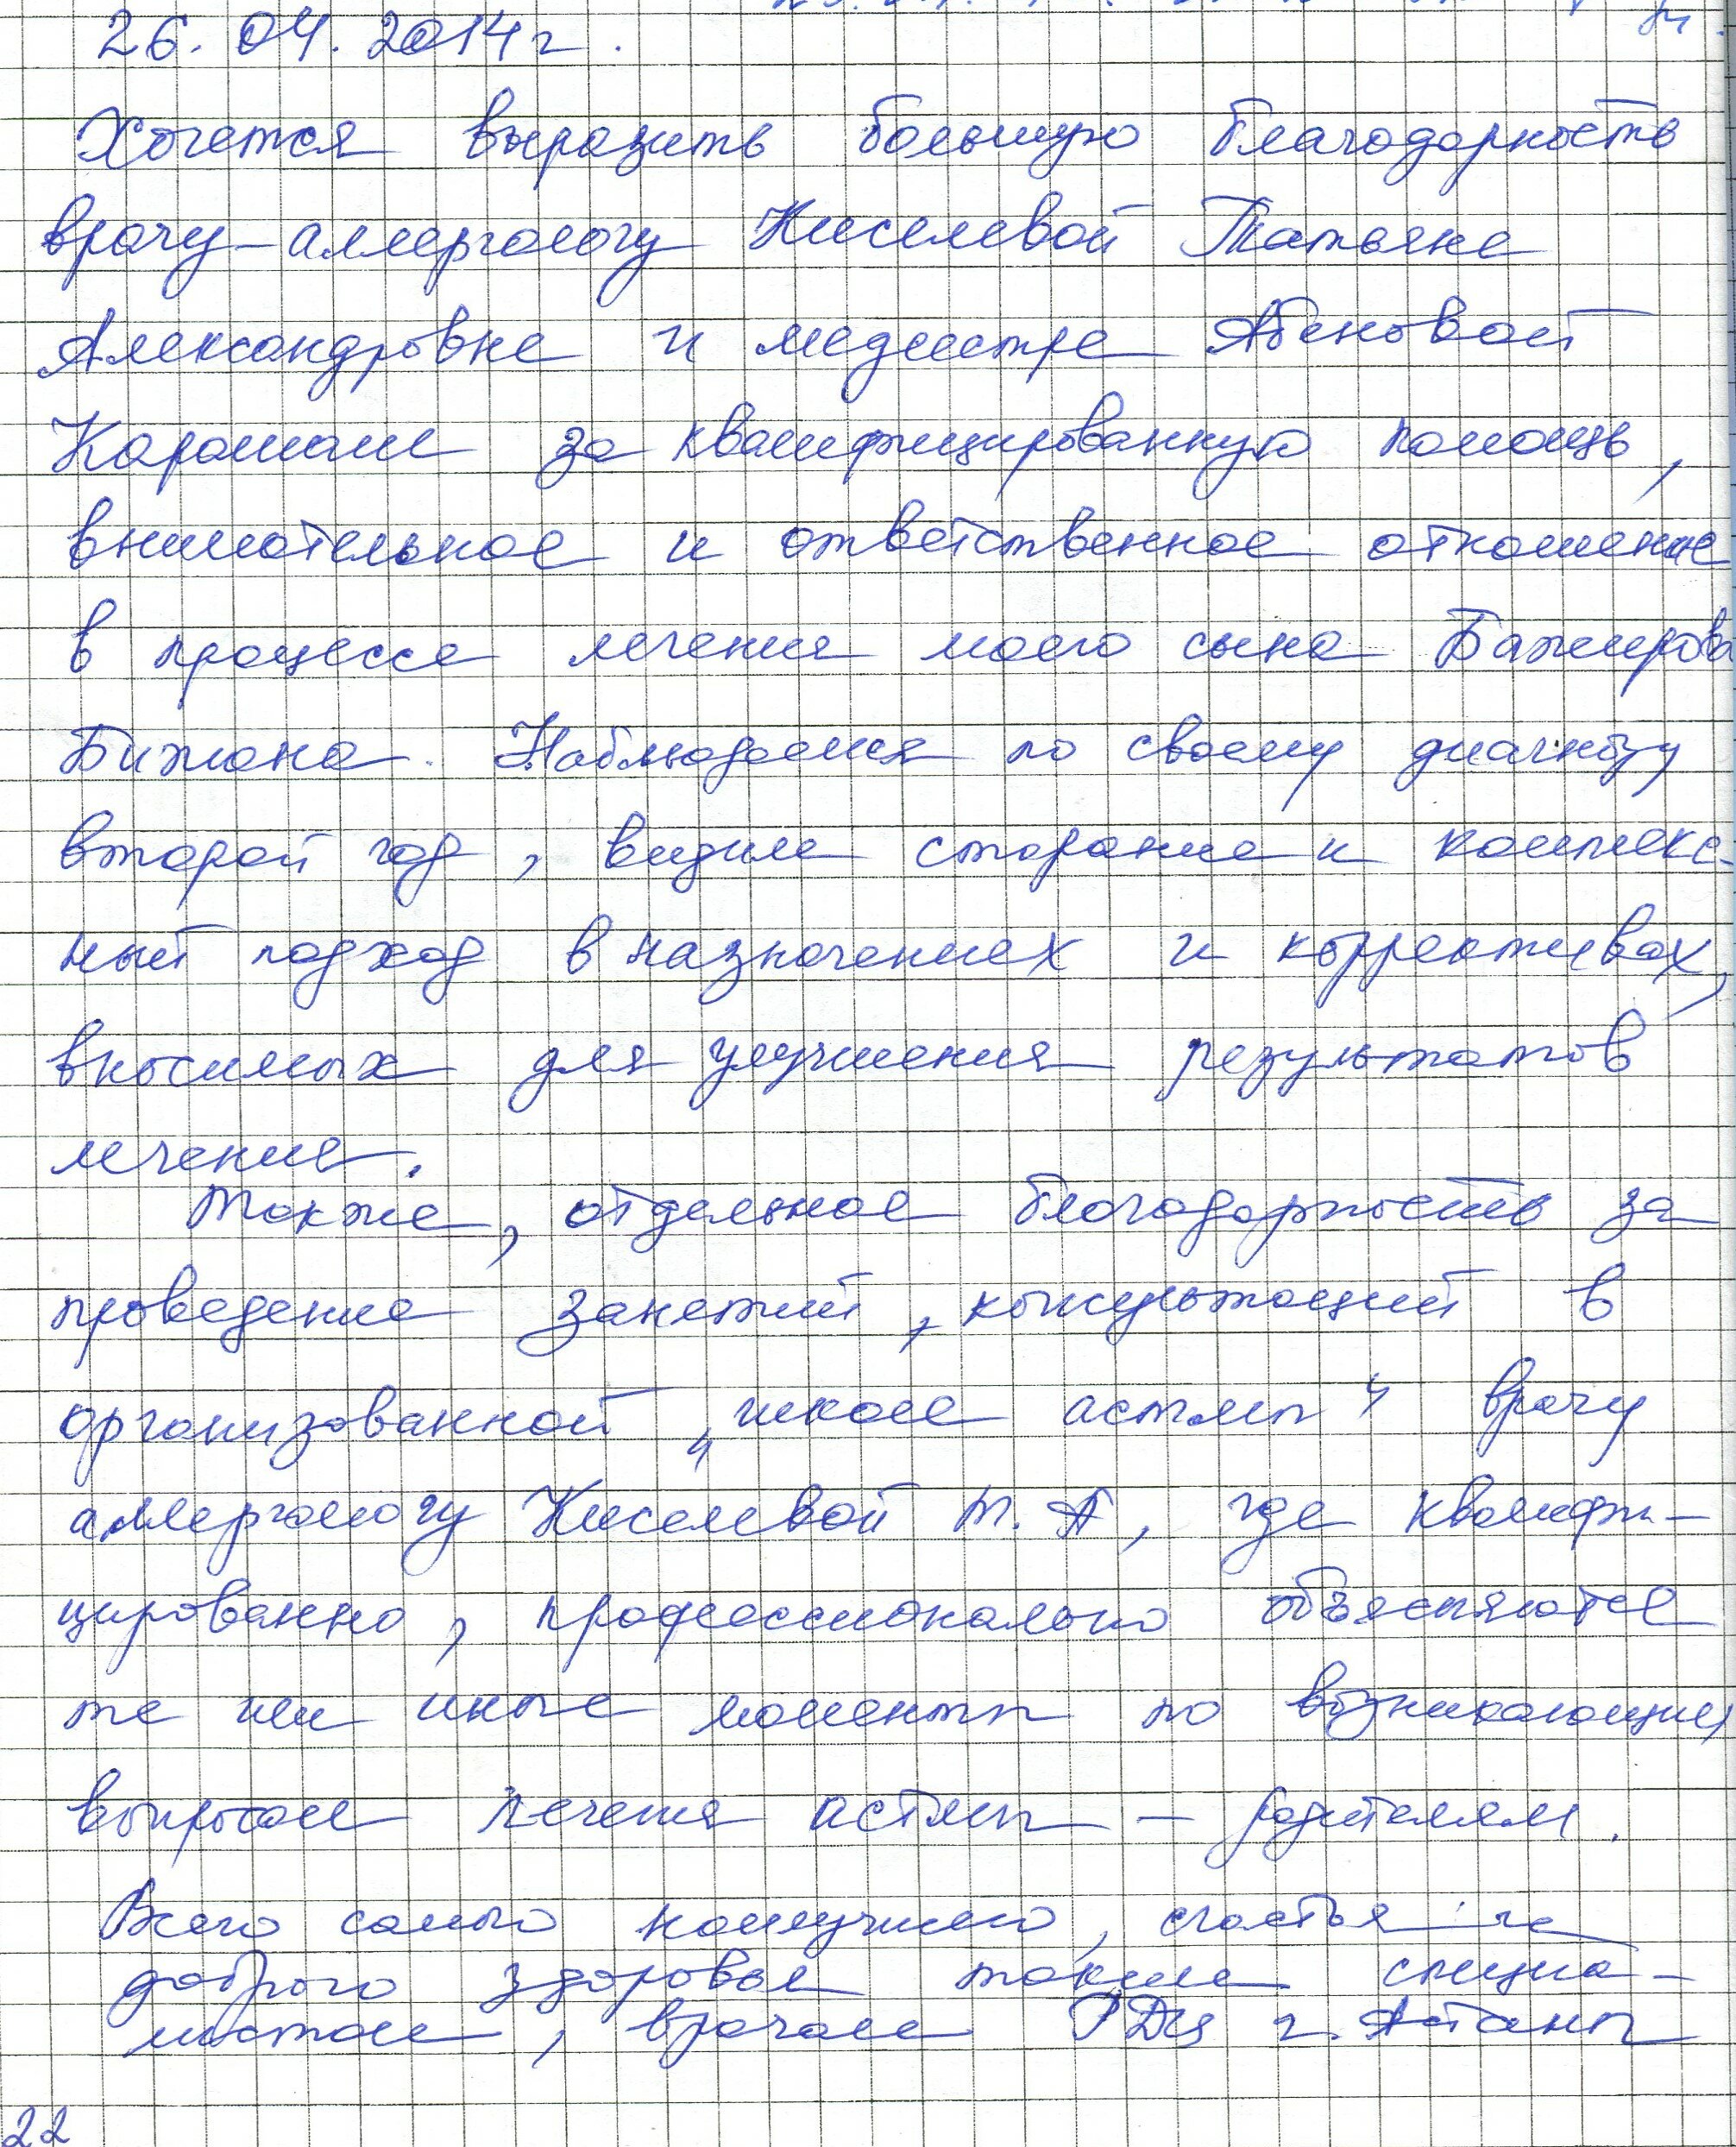 26.04.2014г.
Хочется выразить большую благодарность
врачу-аллергологу Киселевой Татьяне
Александровне и медсестре Абеновой
за квалифицированную помощь,
внимательное и ответственное отношение
в процессе лечения моего сына Бажирова
Бижана. Наблюдаемся по своему диагнозу
второй год, видим старание и комплекс-
ный подход в назначениях и коррективах,
вносимых для улучшения результатов
лечения.
Также, отдельное благодарность за
проведение занятий, консультаций в
организованной „школе астмы" врачу
аллергологу Киселевой Т.А, где квалифи-
цированно, профессионально объясняются
те или иные моменты по возникающим
вопросам лечения астмы - родителям.
Всего самого наилучшего, счастья и
доброго здоровья таким специа-
листам, врачам РДЦ г. Астаны
22